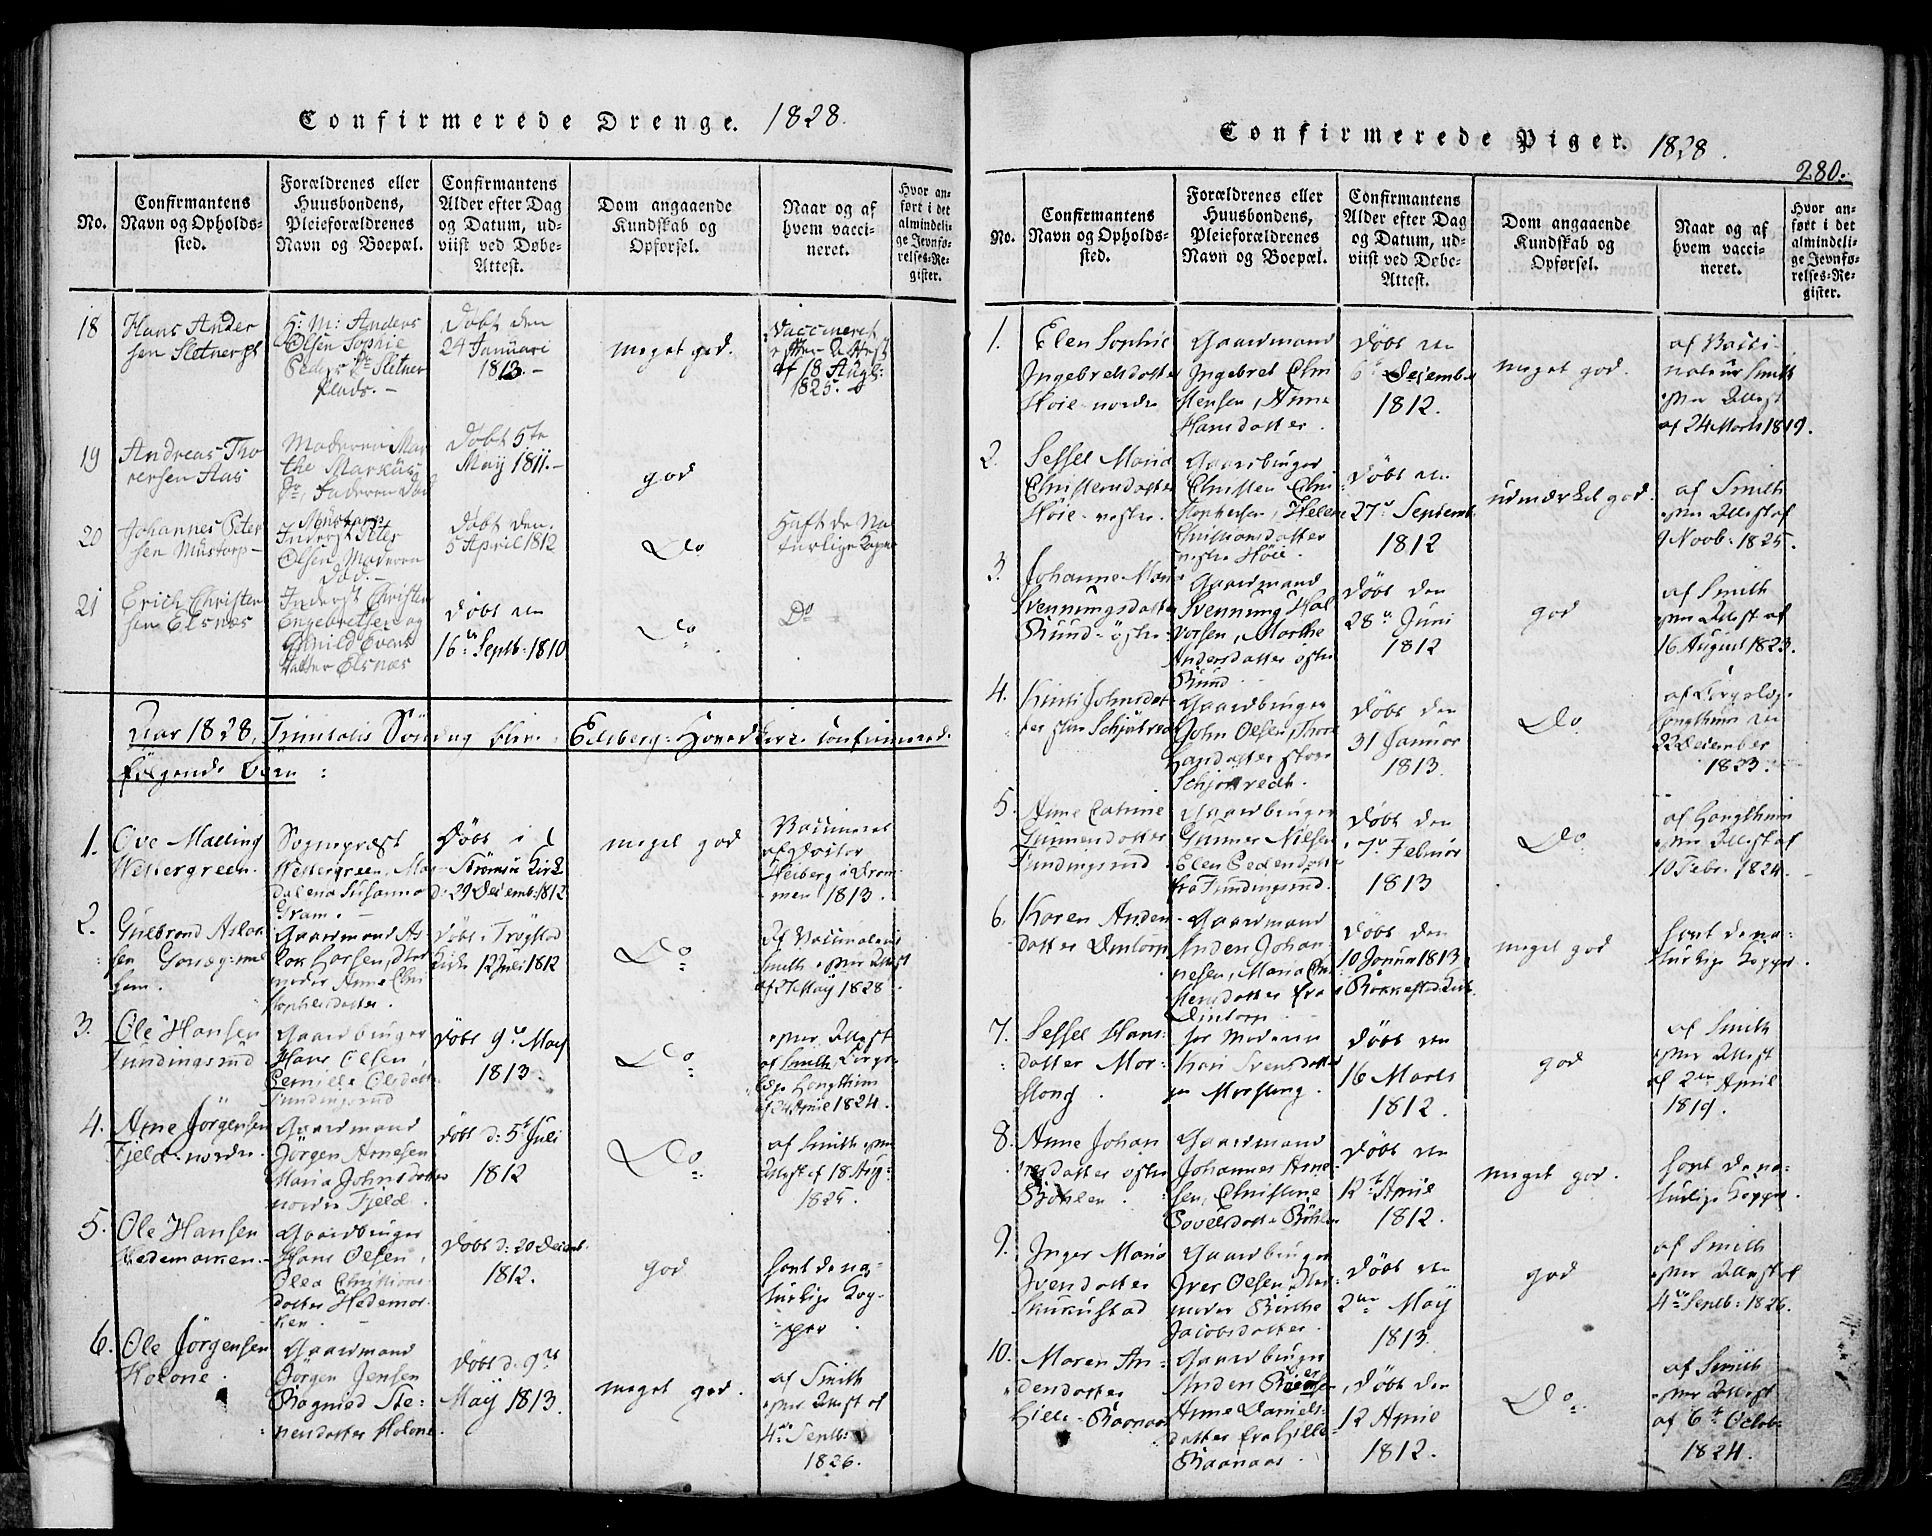 Confirmerede Drenge. 1828.
No.
Confirmantens
Navn og Opholds-
sted.
Forældrenes eller
Huusbondens,
Pleieforældrenes
Navn og Boepæl.
Confirmantens
Alder efter Dag
og Datum, ud-
viist ved Døbe-
Attest.
Dom angaaende
Kundskab og
Opførsel.
Naar og af
hvem vacci-
neret.
Hvor an-
ført i det
almindeli-
ge Jevnfø-
relses-Re-
gister.
18
Hans Ander
sen Sletnerpl
S: M: Anders
Olsen Sophie
Peders Dr Sletner
plads. -
Døbt den
24 Januari
1813. -
meget god.
Vaccineret
efter Attest
af 18 Augt:
1825.
19
Andreas Tho
rersen Aas
Moderen Mar
the Markus
Dr, Faderen Død
Døbt 5te
May 1811. -
god
20
Johannes Peter
sen Mustorp -
Mustorp
Inderst Peter
Olsen Moderen
Død. -
Døbt den.
5 April 1812
Do
Haft de Na
turlige Kopper
21
Erich Christen
sen Elsnes
Inderst Christen
Engebretsen og
Gunild Evens
datter Elsnæs
Døbt den
16de Septb: 1810
Do
Do
Aar 1828, Trinitatis Søndag blev i Eidsberg Hovedkirke confirmerede
følgende Børn :
1.
Ove Malling
Wettergreen.
Sognepræst
Wettergreen, Mag
dalena Susanna
Gram. -
Døbt i
Strømsøe Kirke
d: 29 Decemb: 1812
meget god
Vaccineret
af Doctor
Heiberg i Dram
men 1813.
2.
Gulbrand Aslak
sen
hem.
Gaardmand As
lak Larsen, Stif
moder Anne Chri
stophersdatter.
Døbt i Trøgstad
Kirke 12 Juli 1812
Do
Af Vaccinateur
Smith efter Attest
af 27 May 1828
3.
Ole Hansen
Tundingsrud
Gaardbruger
Hans Olsen,
Pernille Olsdatter
Tundingsrud
Døbt 9de May
1813.
Do
efter Attest
af Smith
Longthim
af 24 April 1824.
4.
Arne Jørgensen
Fjeld nordre.
Gaardmand
Jørgen Arnesen
Maria Johnsdatter
nordre Fjeld.
Døbt d: 5te Juli
1812
Do
af Smith efter
Attest af 18 Aug:
1825.
5.
Ole Hansen
Hedemarken.
Gaardbruger
Hans Olsen,
Olea Christians
datter Hedemar-
ken. -
Døbt d: 20 Decemb:
1812.
god
havt de na-
turlige Kop-
per
6.
Ole Jørgensen
Holone.
Gaardmand
Jørgen Jensen
Ragnild Ste-
nersdatter Holone.
Døbt d: 9de
May 1813.
meget god.
af Smith
efter Attest af
4de Septb:
1826.
Confirmerede Piger. 1828.
280.
No.
Confirmantens
Navn og Opholds-
sted.
Forældrenes eller
Huusbondens,
Pleieforældrenes
Navn og Boepæl.
Confirmantens
Alder efter Dag
og Datum, ud-
viist ved Døbe-
Attest.
Dom angaaende
Kundskab og
Opførsel.
Naar og af
hvem vacci-
neret.
Hvor an-
ført i det
almindeli-
ge Jevnfø-
relses-Re-
gister.
1.
Elen Sophie
Ingebretsdatter
Høie nordre
Gaardmand
Ingebret Chri
stensen, Anne
Hansdatter.
Døbt den
6te December
1812.
meget god.
af Vacci-
nateur Smith
efter Attest
af 24 Marts 1819.
2.
Sessel Maria
Christensdatter
Høie vestre.
Gaardbruger
Christen Chri
stophersen, Helene
Christiansdatter
vestre Høie.
Døbt den
27de Septemb:
1812
udmærket god.
af Smith
efter Attest af
9 Novb: 1825.
3.
Johanne Maria
Svenningsdatter
Rud østre.
Gaardmand
Svenning Hal
vorsen, Marthe
Andersdatter østre
Rud
Døbt den
28de Juni
1812
god
af Smith
efter Attest af
16 August 1823.
4.
Kirsti Johnsdat
ter store Schjøtrud
Gaardbruger
John Olsen, Thore
Larsdatter store
Døbt den
31 Januar
1813.
Do
Longthim den
22 December
1823.
5.
Anne Catrine
Gunnersdatter
Tundingsrud
Gaardbruger
Gunner Nilsen
Elen Pedersdatter
fra Tundingsrud.
Døbt den
7de Februar
1813
Do
af Longthim
efter Attest af
10 Febr: 1824.
6.
Karen Anders
datter Dintorp
Gaardmand
Anders Johan
nesen, Maria Chri
stensdatter fra
Dintorp
Døbt den
10 Januar 1813
i Rakkestad Kirke
meget god
havt de na-
turlige Kopper.
7.
Sessel Hans
datter Mor-
stong.
for Moderen
Kari Svensdatter
Morstong.
Døbt den
16 Marts
1812.
god
af Smith
efter Attest
af 2den April
1819.
8.
Anne Johan
nesdatter østre
Bøhlen
Gaardmand
Johannes Arne
sen, Christine
Povelsdatter Bøhlen
Døbt den
12te April
1812.
meget god.
havt de na-
turlige Kopper.
9.
Inger Maria
Iversdatter
Skukustad
Gaardbruger
Iver Olsen, Stif
moder Birthe
Jacobsdatter.
Døbt den
2den May
1813.
god
af Smith
efter Attest af
4de Septb: 1826.
10.
Maren An-
dersdatter
Lille Raanaas
Gaardbruger
Anders
Anne Daniels
datter fra Lille
Raanaas.
Døbt den
12 April
1812.
Do
af Smith
efter Attest
af 6te Octob:
1824.